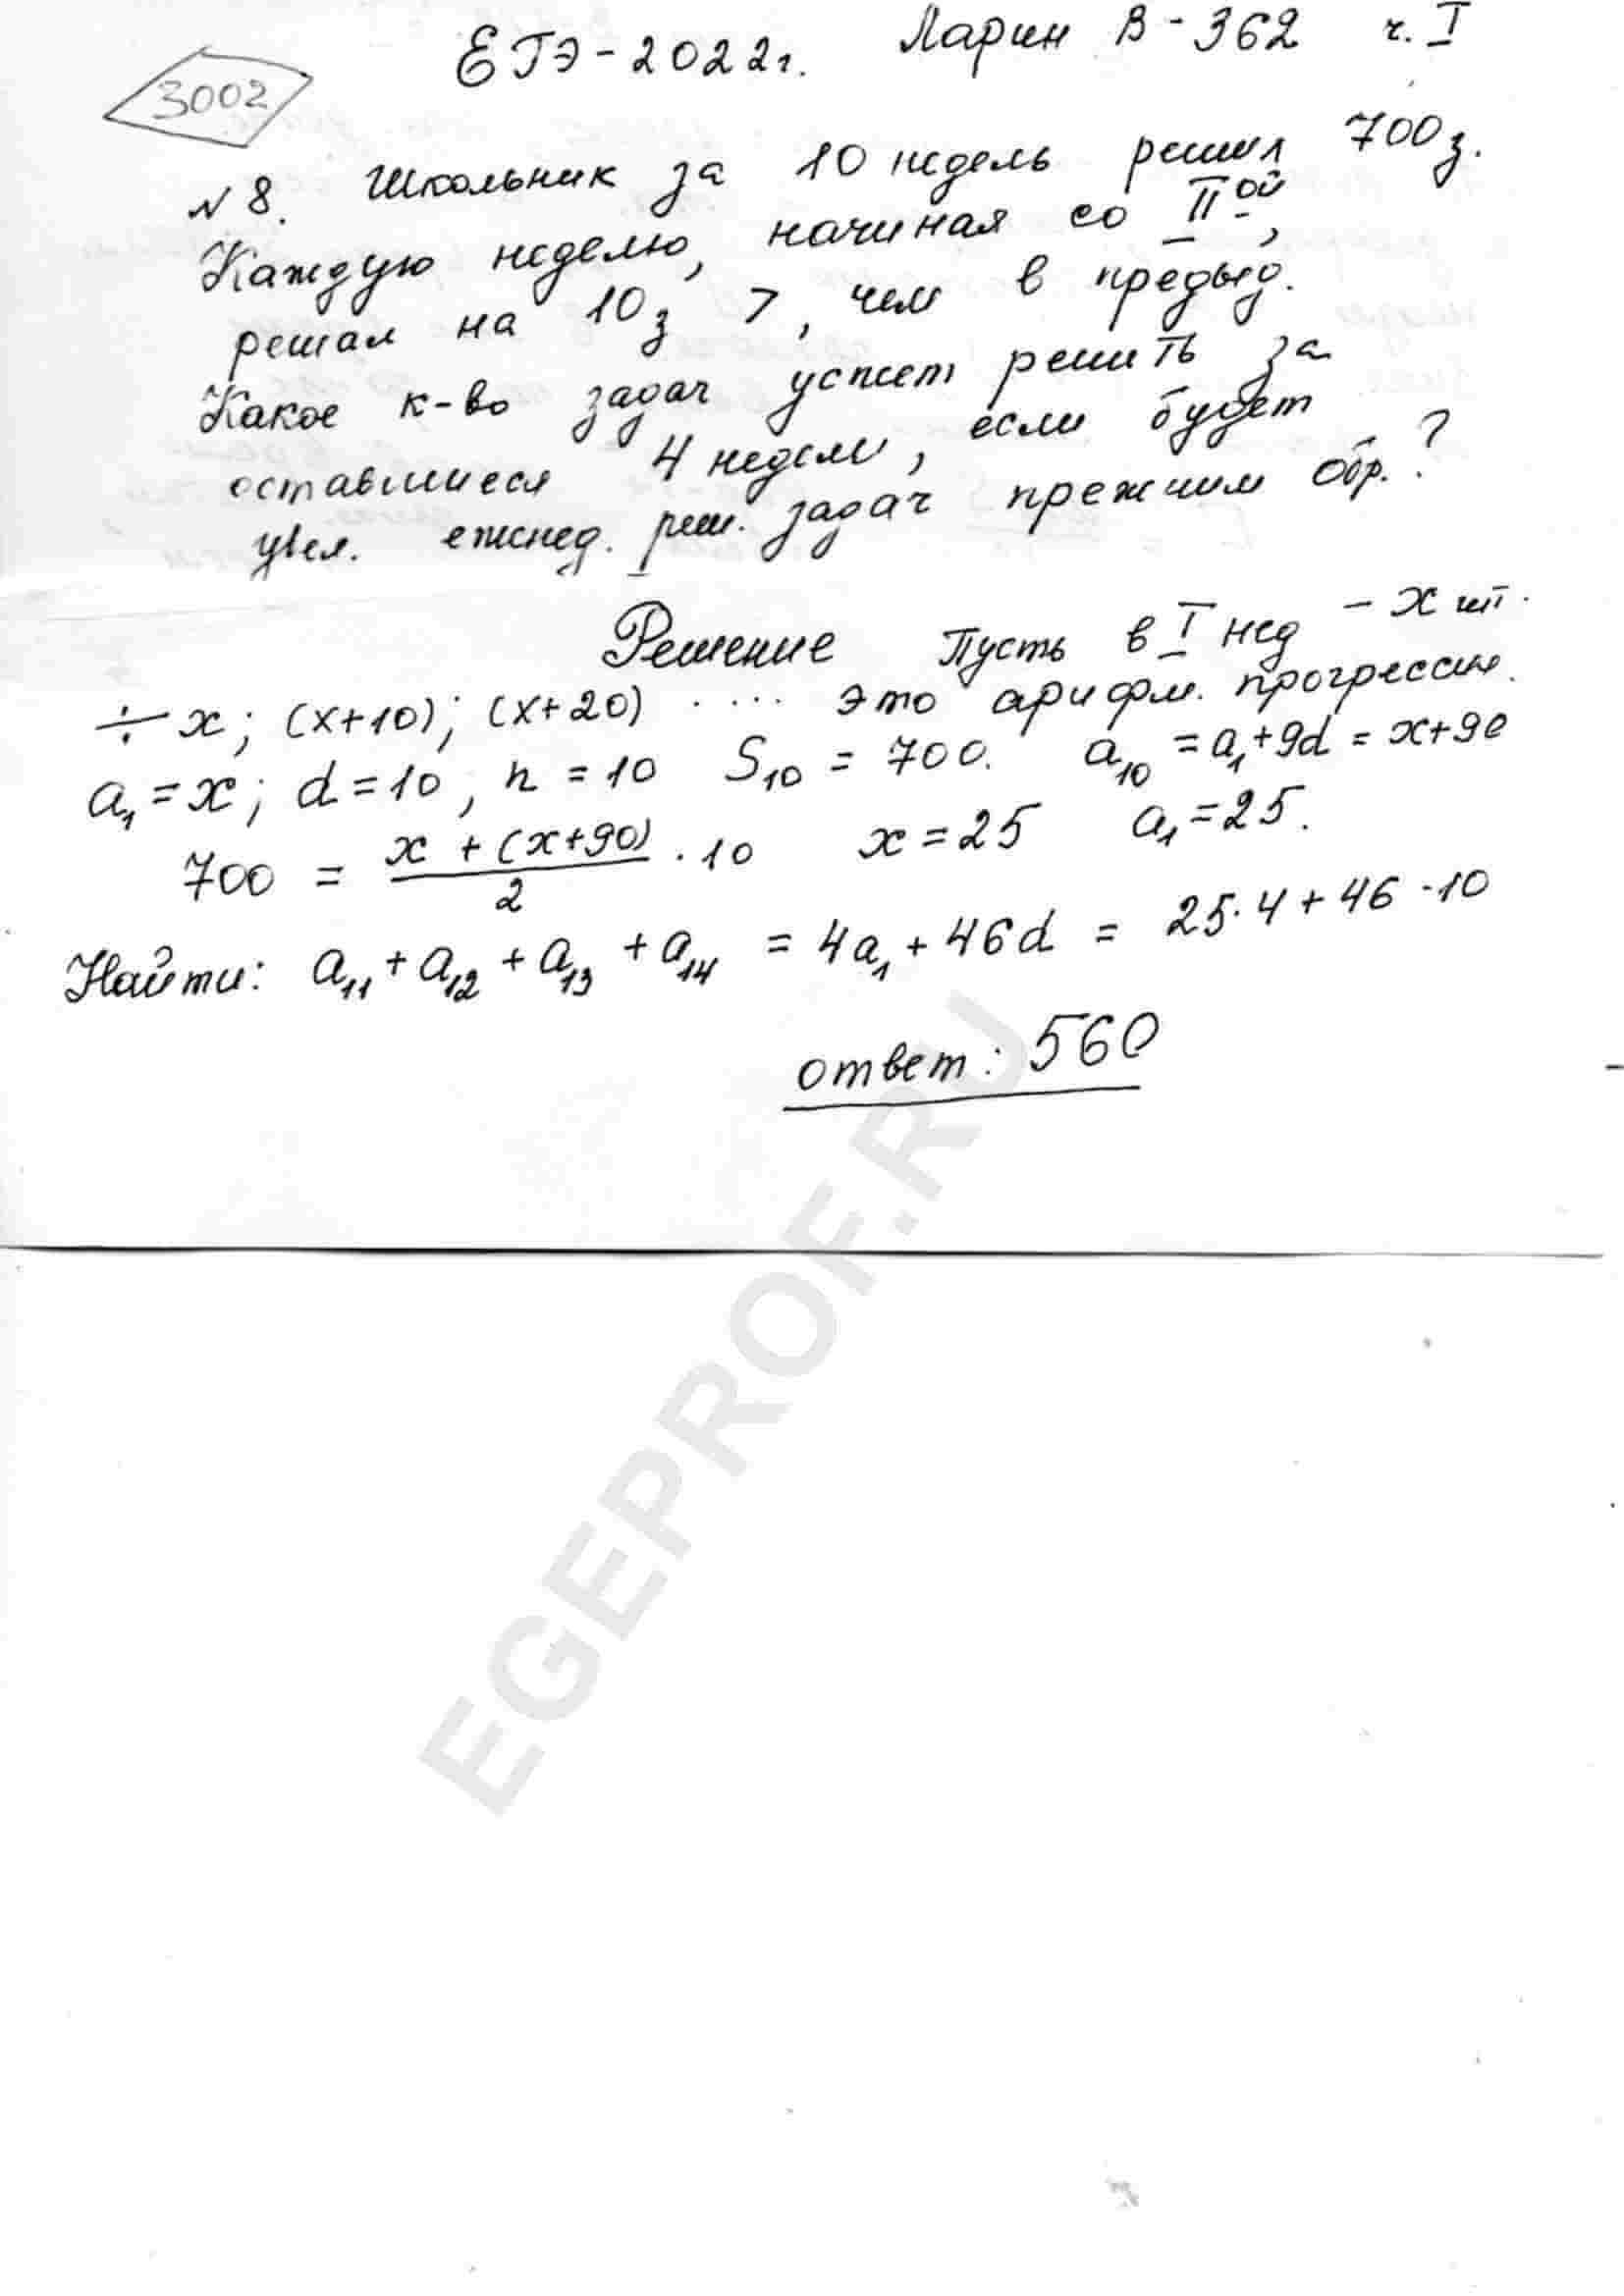 ЕГЭ-2022г. Ларин В-362 ч. I
3002
№8. Школьник за 10 недель решил 700 з.
Каждую неделю, начиная со II-ой,
решал на 10 з >, чем в предыд.
Какое к-во задач успеет решить за
оставшиеся 4 недели, если будет
увел. ежнед. реш. задач прежним обр.?
Решение Пусть в I нед - x шт.
÷ x; (x+10); (x+20) .... это арифм. прогрессия.
a₁ = x; d = 10, n = 10 S₁₀ = 700. a₁₀ = a₁+9d = x+90
700 = (x + (x+90))/2 · 10 x = 25 a₁ = 25.
Найти: a₁₁ + a₁₂ + a₁₃ + a₁₄ = 4a₁ + 46d = 25·4 + 46·10
ответ: 560
EGEPROF.RU